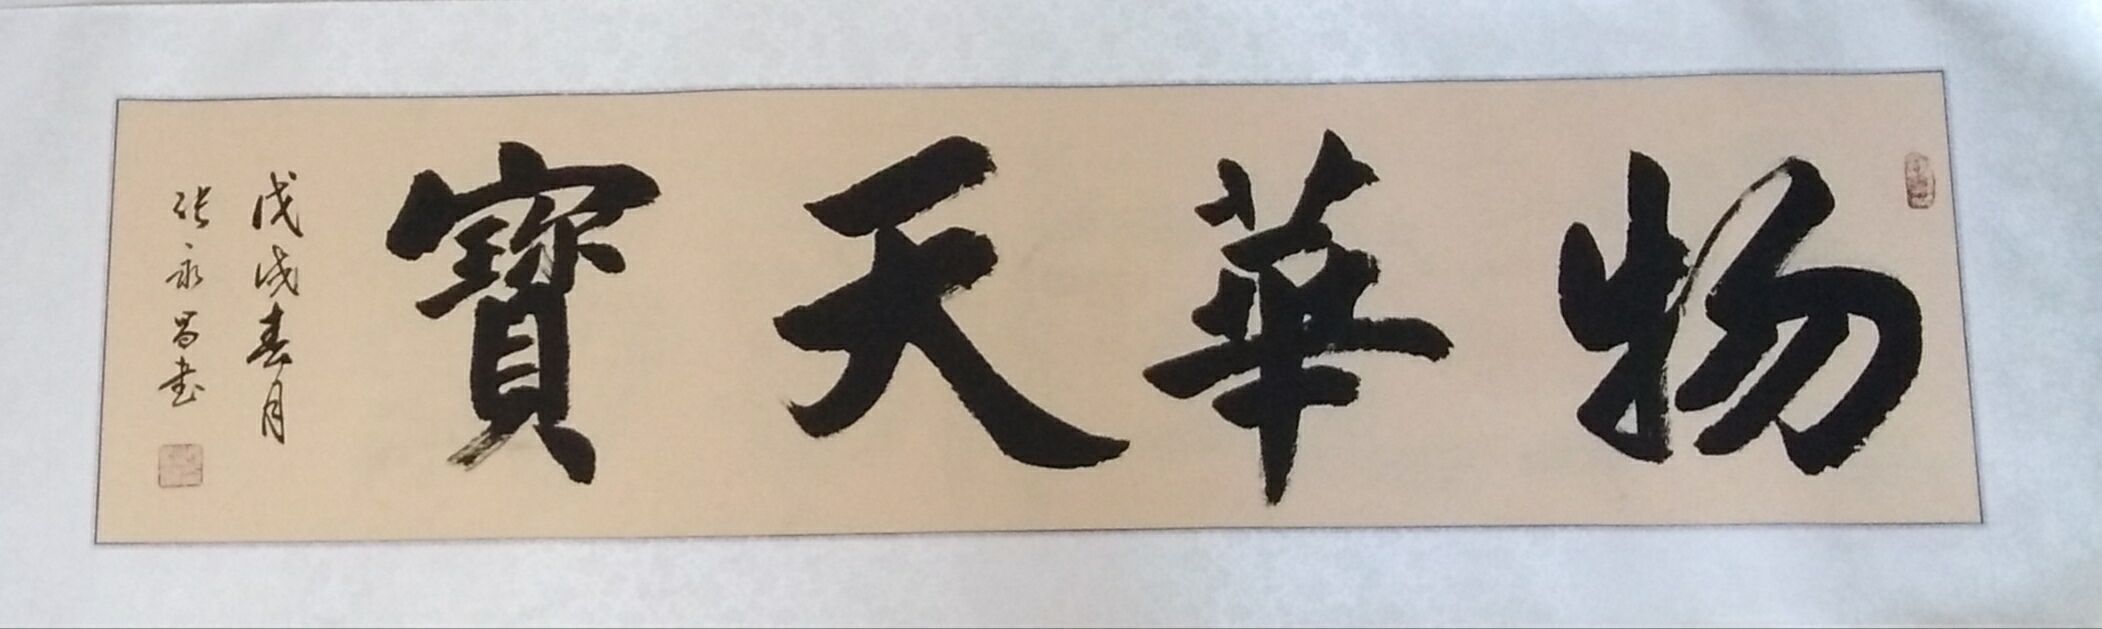 物華天寶
戊戌春月
张永昌书